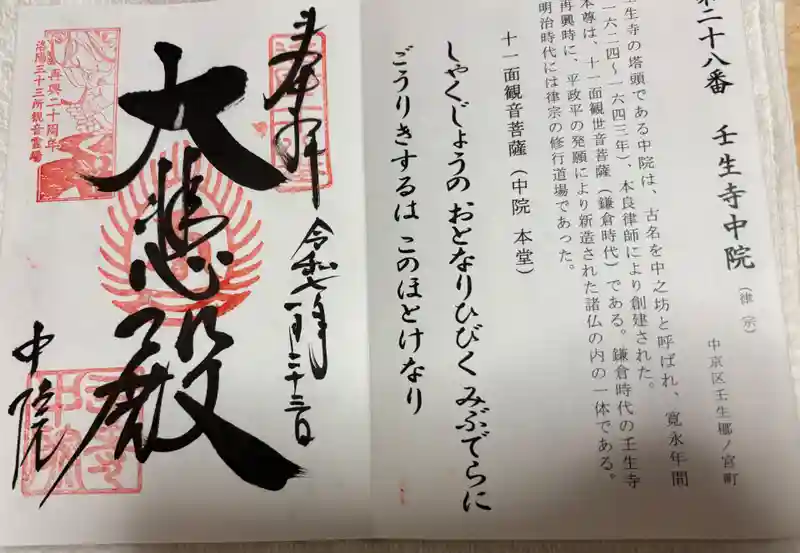 第二十八番 壬生寺中院(律宗)
中京区壬生梛ノ宮町
壬生寺の塔頭である中院は、古名を中之坊と呼ばれ、寛永年間
一六二四~一六四三年)、本良律師により創建された。
本尊は、十一面観世音菩薩(鎌倉時代)である。鎌倉時代の壬生寺
再興時に、平政平の発願により新造された諸仏の内の一体である。
明治時代には律宗の修行道場であった。
十一面観音菩薩(中院 本堂)
しゃくじょうの おとなりひびく みぶでらに
ごうりきするは このほとけなり
奉拝
令和七年
一月二十三日
大悲殿
中院
再興二十周年
洛陽三十三所観音霊場